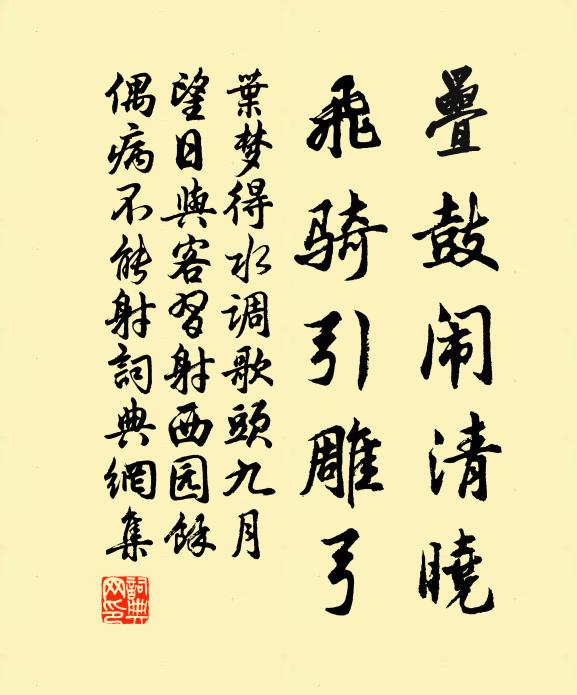 疊鼓闹清曉
飛骑引雕弓
葉梦得水调歌頭九月
望日與客習射西园餘
偶病不能射詞典網集
詞典網印